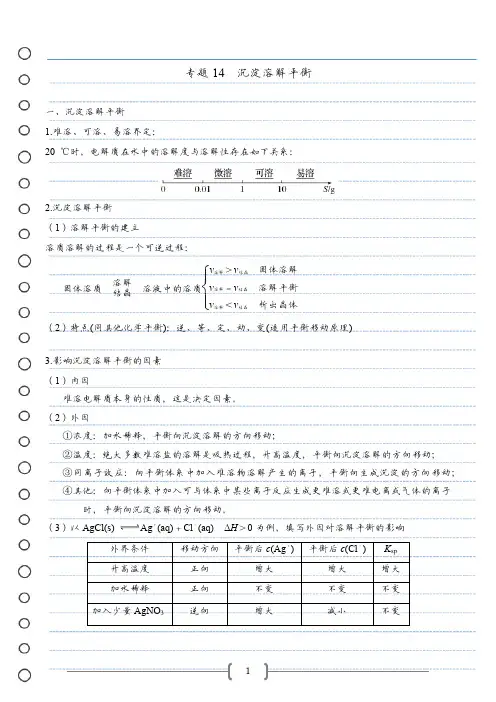 专题14 沉淀溶解平衡
一、沉淀溶解平衡
1.难溶、可溶、易溶界定：
20 ℃时，电解质在水中的溶解度与溶解性存在如下关系：
难溶 微溶 可溶 易溶
0 0.01 1 10 S/g
2.沉淀溶解平衡
（1）溶解平衡的建立
溶质溶解的过程是一个可逆过程：
v溶解＞v结晶 固体溶解
固体溶质 溶解 结晶 溶液中的溶质 v溶解＝v结晶 溶解平衡
v溶解＜v结晶 析出晶体
（2）特点(同其他化学平衡)：逆、等、定、动、变(适用平衡移动原理)
3.影响沉淀溶解平衡的因素
（1）内因
难溶电解质本身的性质，这是决定因素。
（2）外因
①浓度：加水稀释，平衡向沉淀溶解的方向移动；
②温度：绝大多数难溶盐的溶解是吸热过程，升高温度，平衡向沉淀溶解的方向移动；
③同离子效应：向平衡体系中加入难溶物溶解产生的离子，平衡向生成沉淀的方向移动；
④其他：向平衡体系中加入可与体系中某些离子反应生成更难溶或更难电离或气体的离子
时，平衡向沉淀溶解的方向移动。
（3）以 AgCl(s) ⇌ Ag (aq)＋Cl (aq) ΔH＞0 为例，填写外因对溶解平衡的影响
外界条件 移动方向 平衡后 c(Ag ) 平衡后 c(Cl ) Ksp
升高温度 正向 增大 增大 增大
加水稀释 正向 不变 不变 不变
加入少量 AgNO3 逆向 增大 减小 不变
1